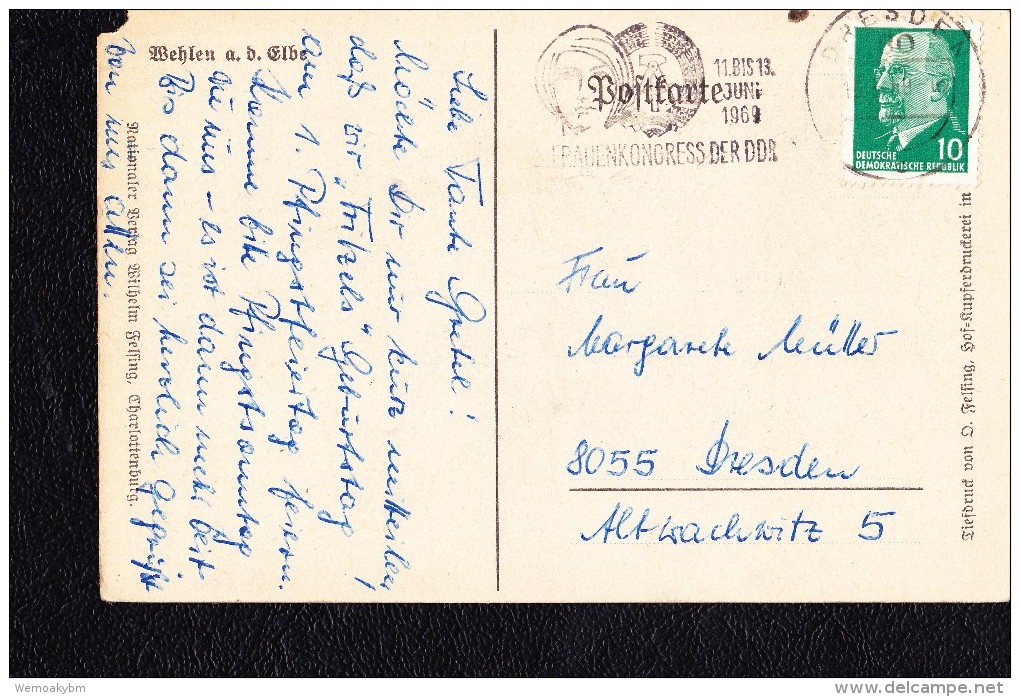 Wehlen a. d. Elbe
Liebe Tante Gretel!
Möchte Dir nur kurz mitteilen,
daß wir „Fritzels" Geburtstag
am 1. Pfingstfeiertag feiern.
Komme bitte Pfingstsonntag
zu uns - es ist dann mehr Zeit.
Bis dann sei herzlich gegrüßt
von uns allen.
Nationaler Verlag Wilhelm Felsing, Charlottenburg.
Postkarte
11. BIS 13.
JUNI
1969
FRAUENKONGRESS DER DDR
DRESDEN
DEUTSCHE
DEMOKRATISCHE REPUBLIK
10
Frau
Margarete Müller
8055 Dresden
Altwachwitz 5
Tiefdruck von O. Felsing, Hof-Kupferdruckerei in
Wemoakybm
©delcampe.net